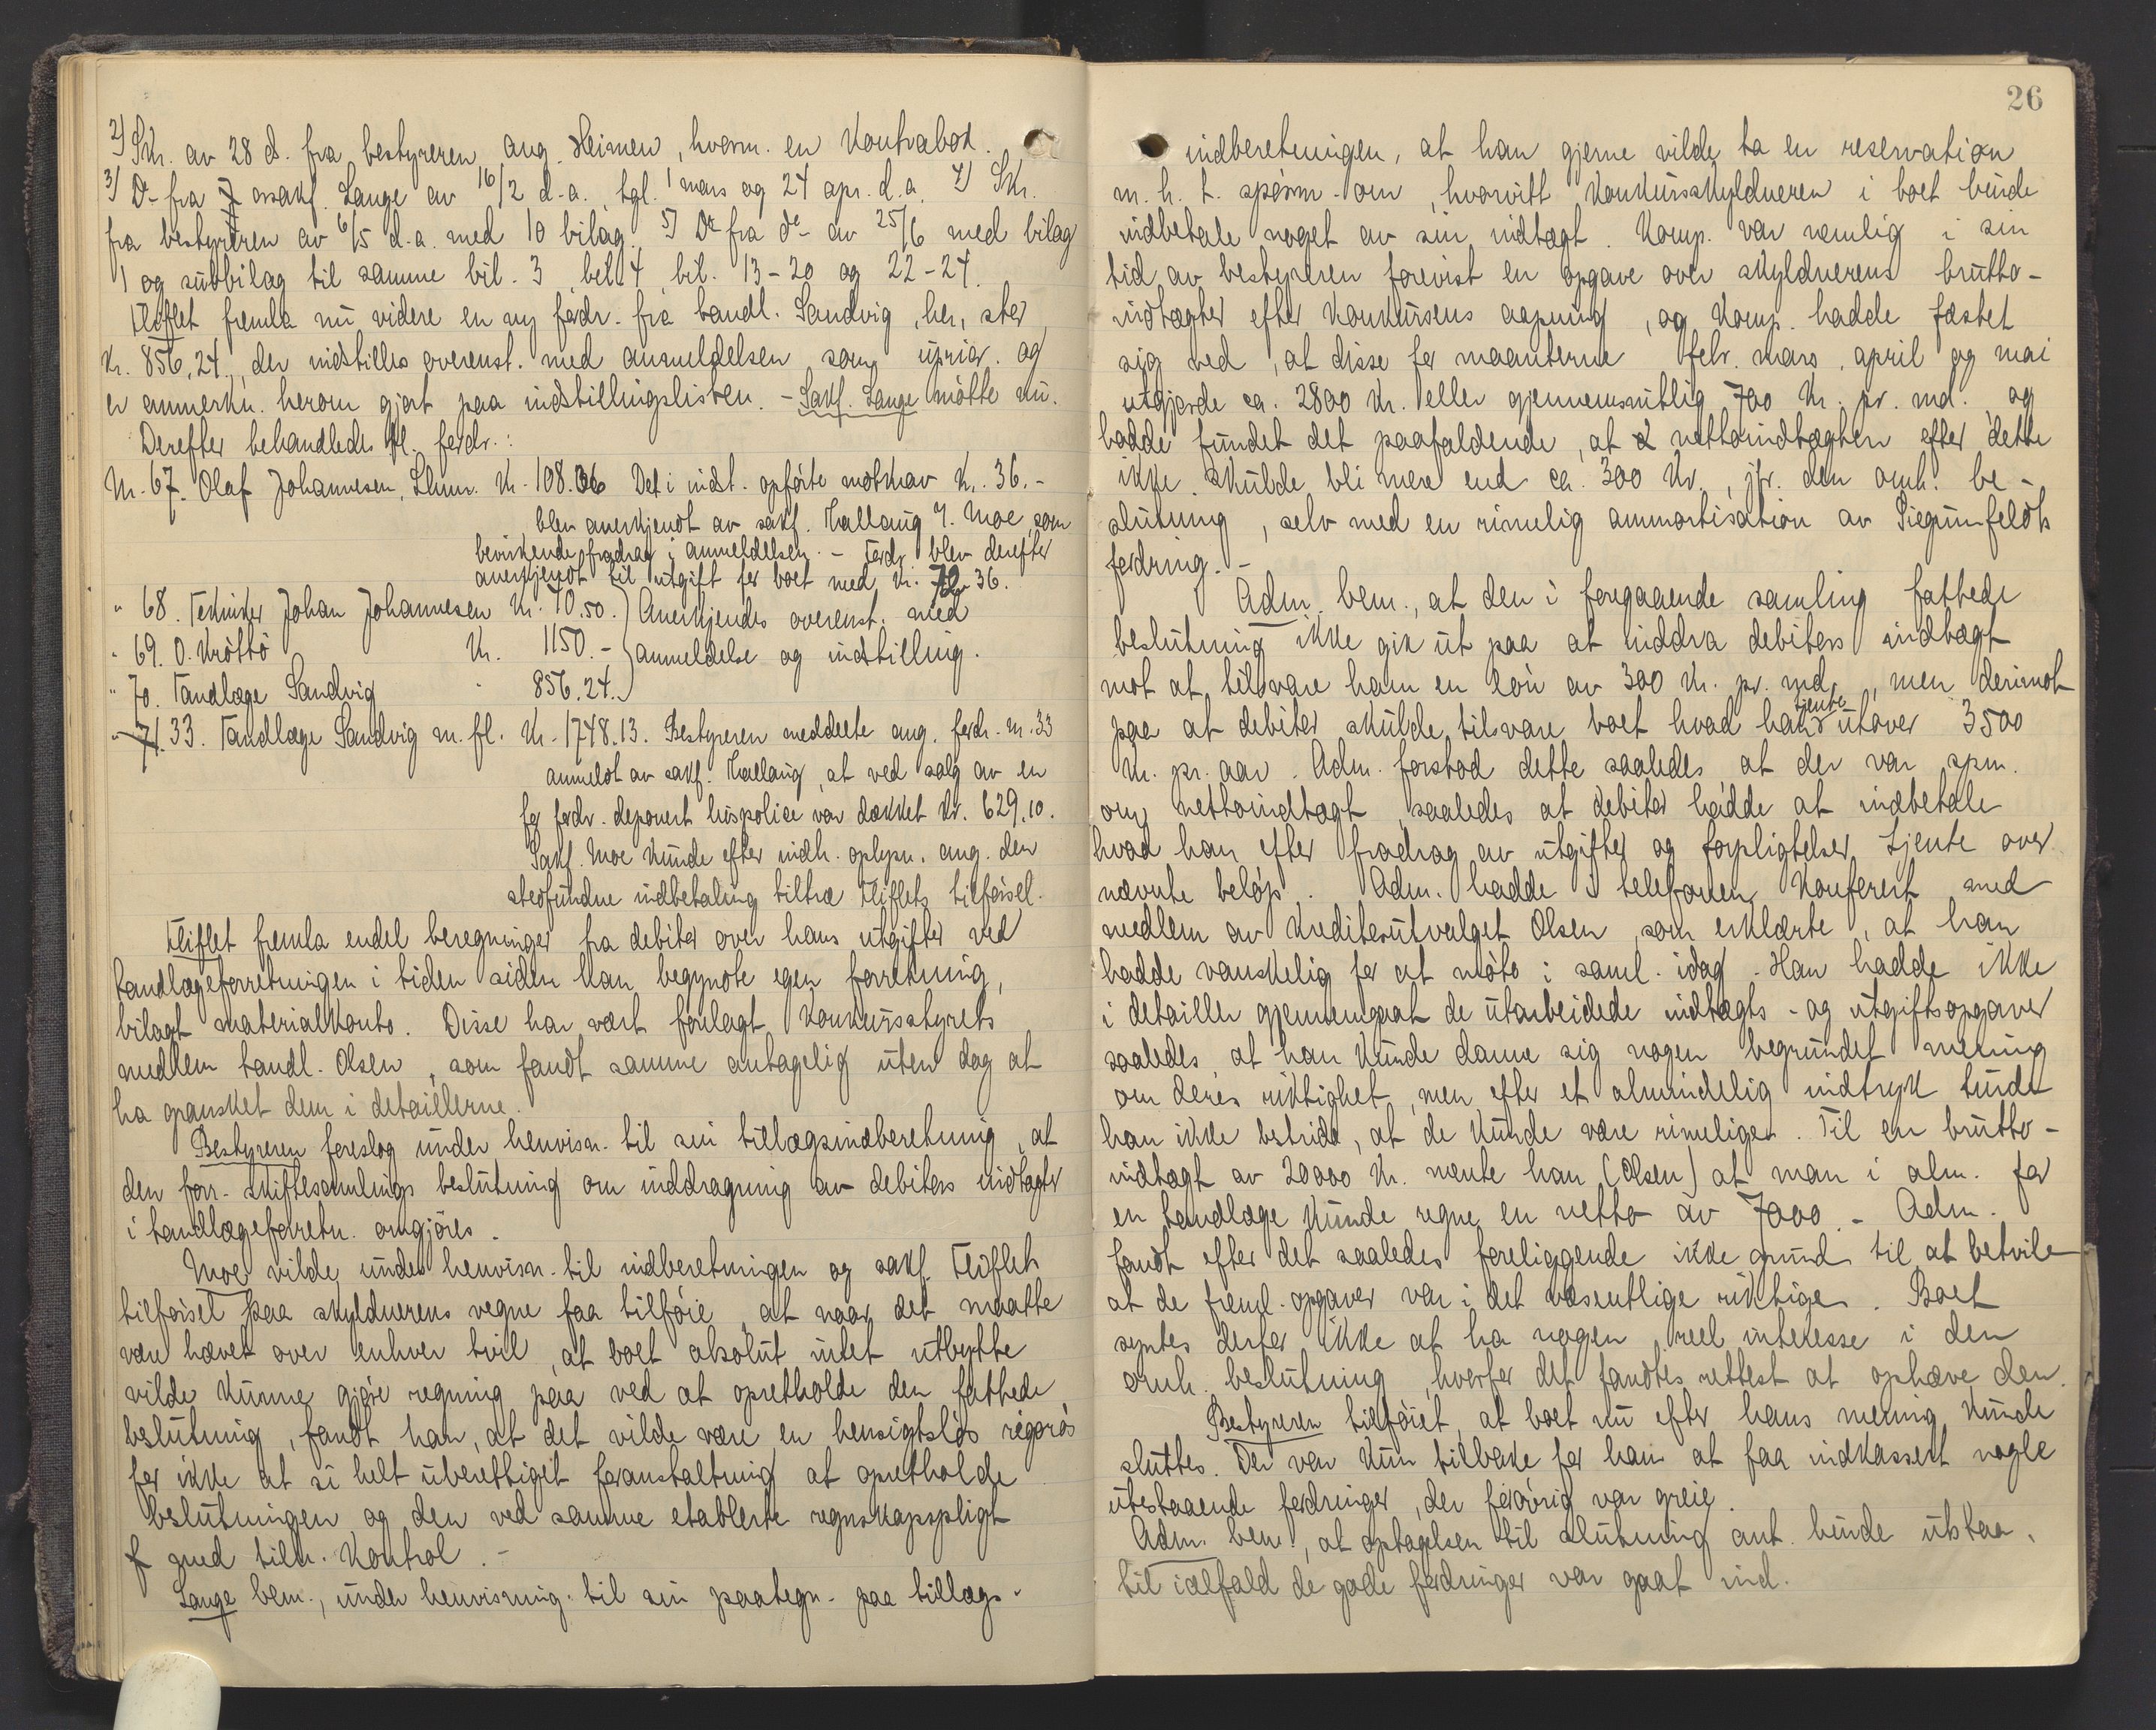 2) Skr. av 28 ds. fra bestyreren ang. Heimen, hvorm. en Kontrabok.
3) Do fra orsakf. Lange av 16/2 d.a., tgl. 1 mars og 24 apr. d.a. 4) Skr.
fra bestyreren av 6/5 d.a. med 10 bilag. 5) Do fra do av 25/6 med bilag
1 og subbilag til samme bil. 3, bil. 4, bil. 13-20 og 22-24.
fremla nu videre en ny fordr. fra tandl. Sandvig, her, stor
Kr. 856.24, der indstilles overenst. med anmeldelsen som uprior. og
er anmerkn. herom gjort paa indstillingslisten. - Sakf. Lange møtte nu.
Derefter behandledes fl. fordr.:
Nr. 67. Olaf Johannesen, Lhmr. Kr. 108.36 Det i indst. opførte motkrav Kr. 36.-
blev anerkjendt av sakf. Hallaug v. Moe, som
bevirkende fradrag i anmeldelsen. - Fordr. blev derefter
anerkjendt til utgift for boet med Kr. 72.36.
" 68. Tekniker Johan Johannesen Kr. 70.50. } Anerkjendes overenst. med
" 69. O. Krøttø Kr. 1150.- } anmeldelse og indstilling.
" 70. Tandlæge Sandvig " 856.24.
" 71. 33. Tandlæge Sandvig m. fl. Kr. 1748.13. Bestyreren meddelte ang. fordr. nr. 33
anmeldt av sakf. Hallaug, at ved salg av en
for fordr. deponert livspolice var dækket Kr. 629.10.
Sakf. Moe kunde efter indh. oplysn. ang. den
stedfundne indbetaling tiltræ tilførsel.
fremla endel beregninger fra debitor over hans utgifter ved
tandlægeforretningen i tiden siden han begyndte egen forretning,
bilagt materialkonto. Disse har vært forelagt Konkursstyrets
medlem tandl. Olsen, som fandt samme antagelig uten dog at
ha gransket dem i detaillerne.
Bestyreren foreslog under henvisn. til sin tillægsindberetning, at
den forr. skiftesamlings beslutning om inddragning av debitors indtægter
i tandlægeforretn. omgjøres.
Moe vilde under henvisn. til indberetningen og sakf.
tilførsel paa skyldnerens vegne faa tilføie, at naar det maatte
være hævet over enhver tvil, at boet absolut intet utbytte
vilde kunne gjøre regning paa ved at opretholde den fattede
beslutning, fandt han, at det vilde være en hensigtsløs rigorøs
for ikke at si helt uberettiget foranstaltning at opretholde
beslutningen og den ved samme etablerte regnskapspligt
med tilh. Kontrol. -
Lange bem., under henvisning til sin paategn. paa tillægs-
26
indberetningen, at han gjerne vilde ta en reservation
m.h.t. spørsm. om, hvorvidt Konkursskyldneren i boet burde
indbetale noget av sin indtægt. Komp. var nemlig i sin
tid av bestyreren forevist en opgave over skyldnerens brutto-
indtægter efter Konkursens aapning, og Komp. hadde fæstet
sig ved, at disse for maanterne febr. mars, april og mai
utgjorde ca. 2800 Kr. eller gjennemsnitlig 700 Kr. pr. md. og
hadde fundet det paafaldende, at nettoindtægten efter dette
ikke skulde bli mere end ca. 300 Kr., jfr. den omh. be-
slutning, selv med en rimelig ammortisation av Siegumfeldts
fordring. -
Adm. bem., at den i foregaaende samling fattede
beslutning ikke gik ut paa at inddra debitors indtægt
mot at tilsvare ham en løn av 300 Kr. pr. md., men derimot
paa at debitor skulde tilsvare boet hvad han tjente utover 3500
Kr. pr. aar. Adm. forstod dette saaledes, at der var spm.
om nettoindtægt, saaledes at debitor hadde at indbetale
hvad han efter fradrag av utgifter og forpligtelser tjente over
nævnte beløp. Adm. hadde i telefonen Konferert med
medlem av Kreditorutvalget Olsen, som erklærte, at han
hadde vanskelig for at møte i saml. idag. Han hadde ikke
i detailler gjennemgaat de utarbeidede indtægts- og utgiftsopgaver
saaledes, at han kunde danne sig nogen begrundet mening
om deres riktighet, men efter et almindelig indtryk turde
han ikke bstride, at de kunde være rimelige. Til en brutto-
indtægt av 20000 Kr. mente han (Olsen) at man i alm. for
en tandlæge kunde regne en netto av 7000. - Adm.
fandt efter det saaledes foreliggende ikke grund til at betvile
at de freml. opgaver var i det væsentlige riktige. Boet
syntes derfor ikke at ha nogen reel interesse i den
omh. beslutning, hvorfor det fandtes rettest at ophæve den.
Bestyreren tilføiet, at boet nu efter hans mening kunde
sluttes. Der var kun tilbake for ham at faa indkassert nogle
utestaaende fordringer, der forøvrig var greie.
Adm. bem., at optagelsen til slutning ant. burde utstaa,
til ialfald de gode fordringer var gaat ind.